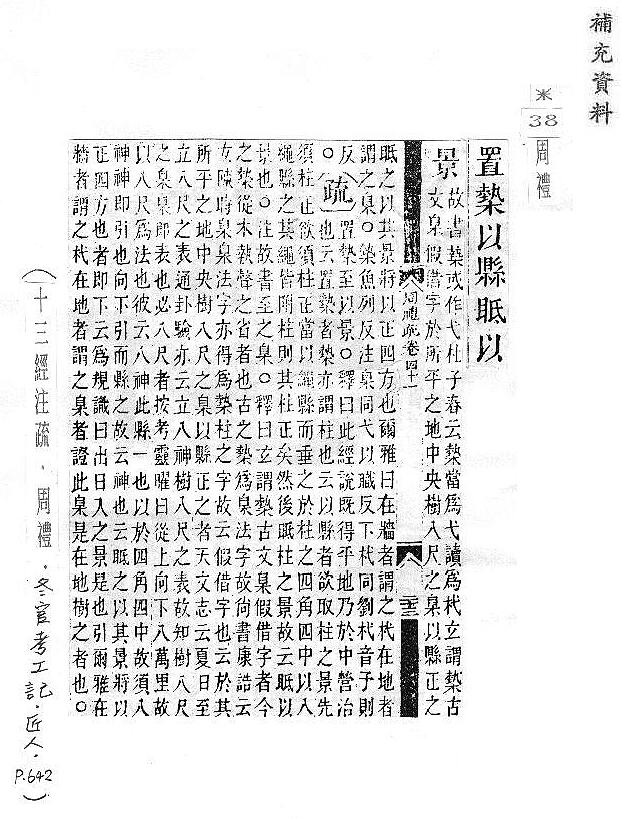 補充資料
米
38
周禮
置槷以縣眡以
景
故書槷或作弋杜子春云槷當為弋讀為杙玄謂槷古
文臬假借字於所平之地中央樹八尺之臬以縣正之
周禮疏卷四十一
三
眡之以其景將以正四方也爾雅曰在牆者謂之杙在地者
謂之臬○槷魚列反注臬同弋以職反下杙同劉杙音子則
反○疏置槷至以景○釋曰此經説既得平地乃於中營治
也云置槷者槷亦謂柱也云以縣者欲取柱之景先
須柱正欲須柱正當以繩縣而垂之於柱之四角四中以八
繩縣之其繩皆附柱則其柱正矣然後眡柱之景故云眡以
景也○注故書至之臬○釋曰玄謂槷古文臬假借字者今
之槷從木執聲之省者也古之槷為臬法字故尚書康誥云
女陳時臬臬法字亦得為槷柱之字故云假借字也云於其
所平之地中央樹八尺之臬以縣正之者天文志云夏日至
立八尺之表通卦驗亦云立八神樹八尺之表故知樹八尺
之臬臬即表也必八尺者按考靈曜曰從上向下八萬里故
以八尺為法也彼云八神此縣一也以於四角四中故須八
神神即引也向下引而縣之故云神也云眡之以其景將以
正四方也者即下云為規識日出日入之景是也引爾雅在
牆者謂之杙在地者謂之臬者證此臬是在地樹之者也○
(十三經注疏．周禮．冬官考工記．匠人．P.642)